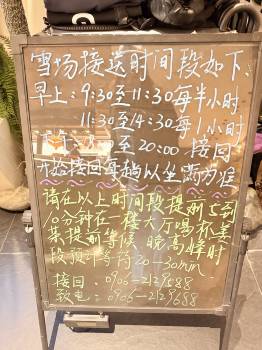 雪场接送时间段如下:
早上:9:30至11:30每半小时
11:30至14:30每1小时
下午: 至20:00 接回
开始接回每趟以坐满为准
请在以上时间段提前5到
10分钟在一楼大厅喝杯姜
茶提前等候 晚高峰时
段预计等待20-30min
接回:0906-2129688
致电:0906-2129688